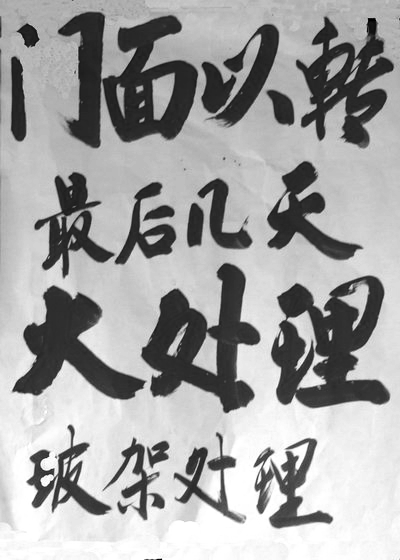 门面以转
最后几天
大处理
玻架处理